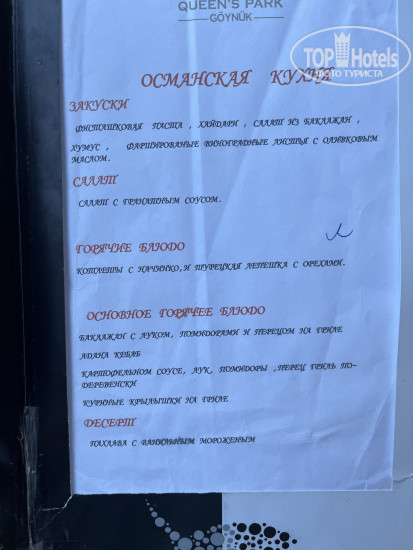 QUEEN'S PARK
GÖYNÜK
TOP Hotels
ФОТО ТУРИСТА
ОСМАНСКАЯ КУХНЯ
ЗАКУСКИ
ФИСТАШКОВАЯ ПАСТА , ХАЙДАРИ , САЛАТ ИЗ БАКЛАЖАН ,
ХУМУС , ФАРШИРОВАНЫЕ ВИНОГРАДНЫЕ ЛИСТЬЯ С ОЛИВКОВЫМ
МАСЛОМ.
САЛАТ
САЛАТ С ГРАНАТНЫМ СОУСОМ.
ГОРЯЧИЕ БЛЮДО
КОТЛЕТЫ С НАЧИНКО,И ТУРЕЦКАЯ ЛЕПЕШКА С ОРЕХАМИ.
ОСНОВНОЕ ГОРЯЧЕЕ БЛЮДО
БАКЛАЖАН С ЛУКОМ, ПОМИДОРАМИ И ПЕРЕЦОМ НА ГРИЛЕ
АДАНА КЕБАБ
КАРТОФЕЛЬНОМ СОУСЕ, ЛУК, ПОМИДОРЫ ,ПЕРЕЦ ГРИЛЬ ПО-
ДЕРЕВЕНСКИ
КУРИНЫЕ КРЫЛЫШКИ НА ГРИЛЕ
ДЕСЕРТ
ПАХЛАВА С ВАНИЛЬНЫМ МОРОЖЕНЫМ